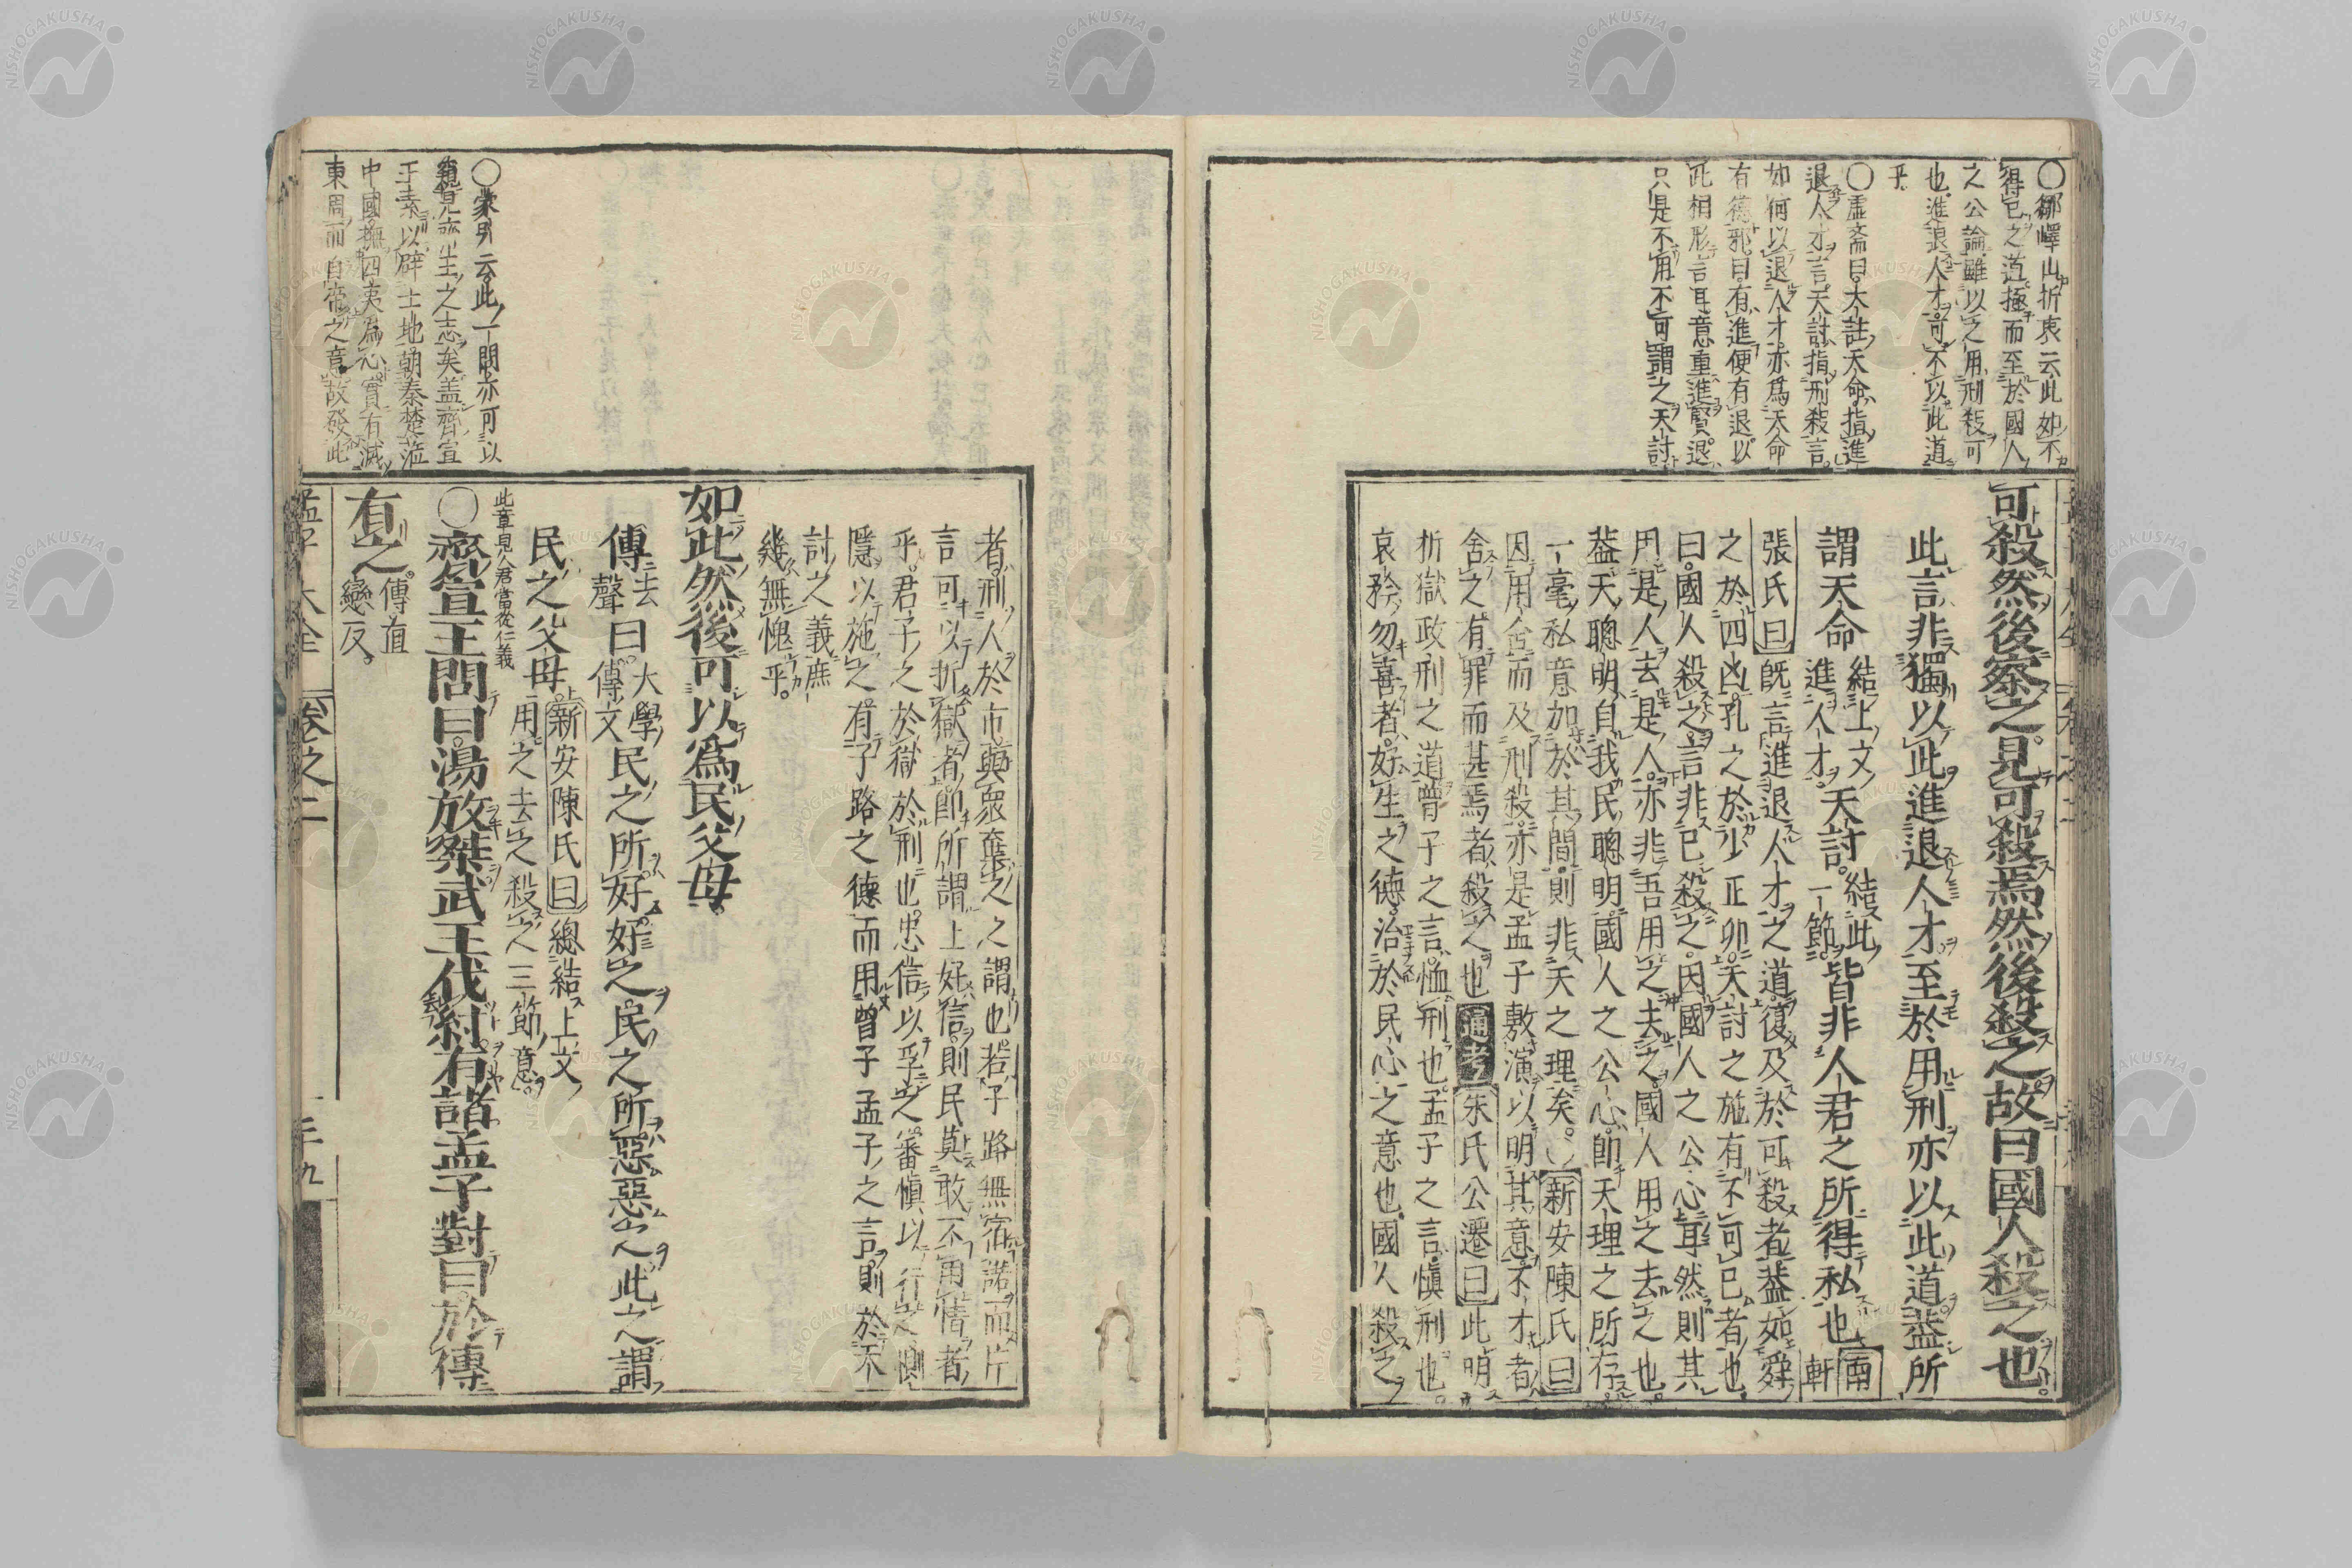 〇鄒嶧山折衷云此如不
得已之道極而至於國人
之公論雖以之用刑殺可
也進退人才可不以此道
乎
〇虚斎曰大註天命指進
退人才言天討指刑殺言
如何以退人才亦爲天命
有德邪曰有進便有退以
此相形言耳意重進賢退
只是不用不可謂之天討
可殺然後察之見可殺焉然後殺之故曰國人殺之也
此言非獨以此進退人才至於用刑亦以此道蓋所
謂天命
結上文
進人才
天討
結此
一節
皆非人君之所得私也
南
軒
張氏曰既言進退人才之道復及於可殺者蓋如舜
之於四凶孔之於少正卯天討之施有不可已者也
曰國人殺之言非已殺之因國人之公心耳然則其
用是人去是人亦非吾用之去之國人用之去之也
蓋天聰明自我民聰明國人之公心卽天理之所存
一毫私意加於其間則非天之理矣新安陳氏曰
因用舍而及刑殺亦是孟子敷演以明其意不才者
舍之有罪而甚焉者殺之也通考朱氏公遷曰此明
折獄政刑之道曾子之言恤刑也孟子之言愼刑也
哀矜勿喜者好生之德治於民心之意也國人殺之
〇蒙引云此一問亦可以
窺見齊王之志矣盖齊宣
王素以辟土地朝秦楚莅
中國撫四夷爲心實有滅
東周而自帝之意故發此
者刑人於市與衆棄之之謂也若子路無宿諾而片
言可以折獄者卽所謂上好信則民莫敢不用情者
乎君子之於獄於刑也忠信以孚之審愼以行之惻
隱以施之有子路之德而用曾子孟子之言則於天
討之義庶
幾無愧乎
如此然後可以爲民父母
傳
去
聲
曰
大學
傳文
民之所好好之民之所惡惡之此之謂
民之父母
新安陳氏曰總結上文
用之去之殺之三節意
此章見人君當從仁義
〇齊宣王問曰湯放桀武王伐紂有諸孟子對曰於傳
有之
傳直
戀反
孟子大全
卷之二
三九